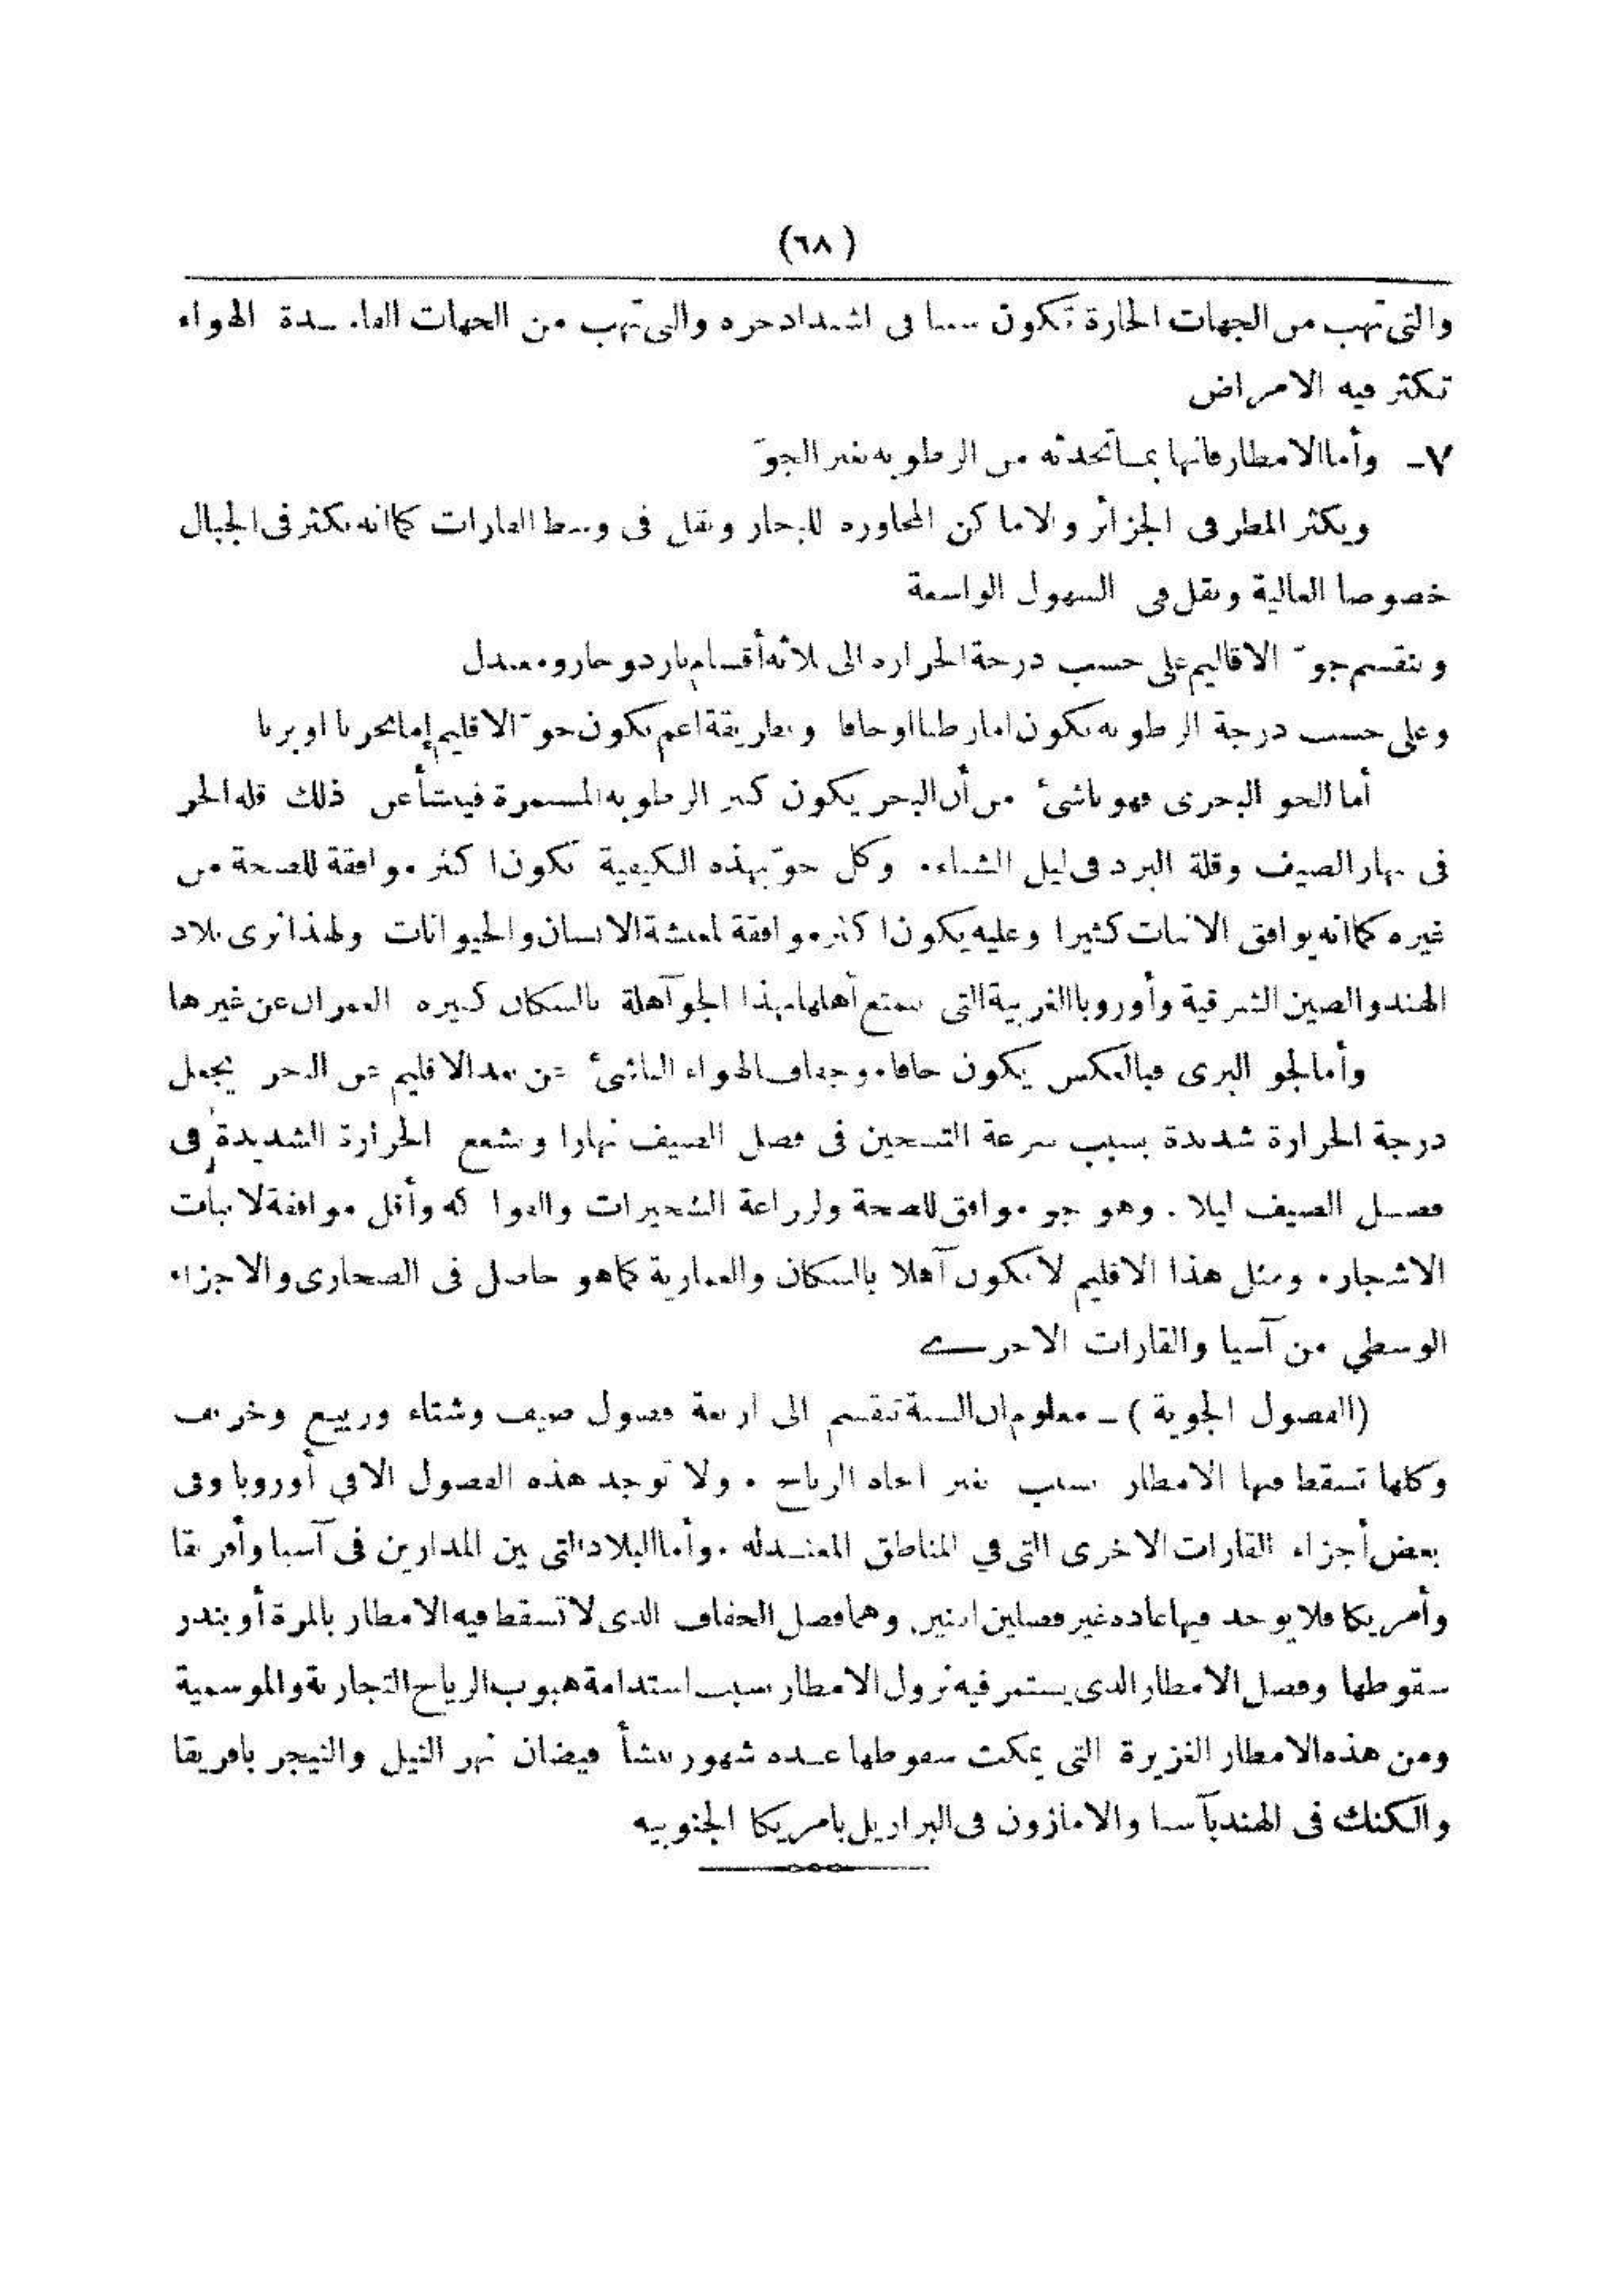 (٦٨)
والتى تهب من الجهات الحارة تكون سببا فى اشتداد حره والتى تهب من الجهات الفاسدة الهواء
تكثر فيه الامراض
٧ـ وأما الامطار فانها بما تحدثه من الرطوبة تغير الجوّ
ويكثر المطر فى الجزائر والاماكن المجاورة للبحار ويقل فى وسط القارات كما انه يكثر فى الجبال
خصوصا العالية ويقل فى السهول الواسعة
وينقسم جوّ الاقاليم على حسب درجة الحرارة الى ثلاثة أقسام بارد وحار ومعتدل
وعلى حسب درجة الرطوبة يكون اما رطبا او جافا وبطريقة اعم يكون جوّ الاقليم إما بحريا او بريا
أما الجو البحرى فهو ناشئ من أن البحر يكون كثير الرطوبة المستمرة فينشأ عن ذلك قلة الحر
فى نهار الصيف وقلة البرد فى ليل الشتاء. وكل جوّ بهذه الكيفية تكون اكثر موافقة للصحة من
غيره كما انه يوافق الانبات كثيرا وعليه يكون اكثر موافقة لمعيشة الانسان والحيوانات ولهذا نرى بلاد
الهند والصين الشرقية وأوروبا الغربية التى يتمتع أهلها بهذا الجو آهلة بالسكان كثيرة العمران عن غيرها
وأما الجو البرى فبالعكس يكون جافا. وجفاف الهواء الناشئ عن بعد الاقليم عن البحر يجعل
درجة الحرارة شديدة بسبب سرعة التسخين فى فصل الصيف نهارا وتشعع الحرارة الشديدة فى
فصل الصيف ليلا. وهو جو موافق للصحة ولزراعة الشجيرات والفواكه وأقل موافقة لانبات
الاشجار. ومثل هذا الاقليم لا يكون آهلا بالسكان والعمارية كما هو حاصل فى الصحارى والاجزاء
الوسطى من آسيا والقارات الاخرى
(الفصول الجوية) ـ معلوم ان السنة تنقسم الى اربعة فصول صيف وشتاء وربيع وخريف
وكلها تسقط فيها الامطار بسبب تغير اتجاه الرياح. ولا توجد هذه الفصول الا في أوروبا وفى
بعض أجزاء القارات الاخرى التى في المناطق المعتدلة. وأما البلاد التى بين المدارين فى آسيا وأفريقا
وأمريكا فلا يوجد فيها عادة غير فصلين اثنين وهما فصل الجفاف الذى لا تسقط فيه الامطار بالمرة أو يندر
سقوطها وفصل الامطار الذى يستمر فيه نزول الامطار بسبب استدامة هبوب الرياح التجارية والموسمية
ومن هذه الامطار الغزيرة التى يمكث سقوطها عدة شهور ينشأ فيضان نهر النيل والنيجر بافريقا
والكنك فى الهند بآسيا والامازون فى البرازيل بامريكا الجنوبيه